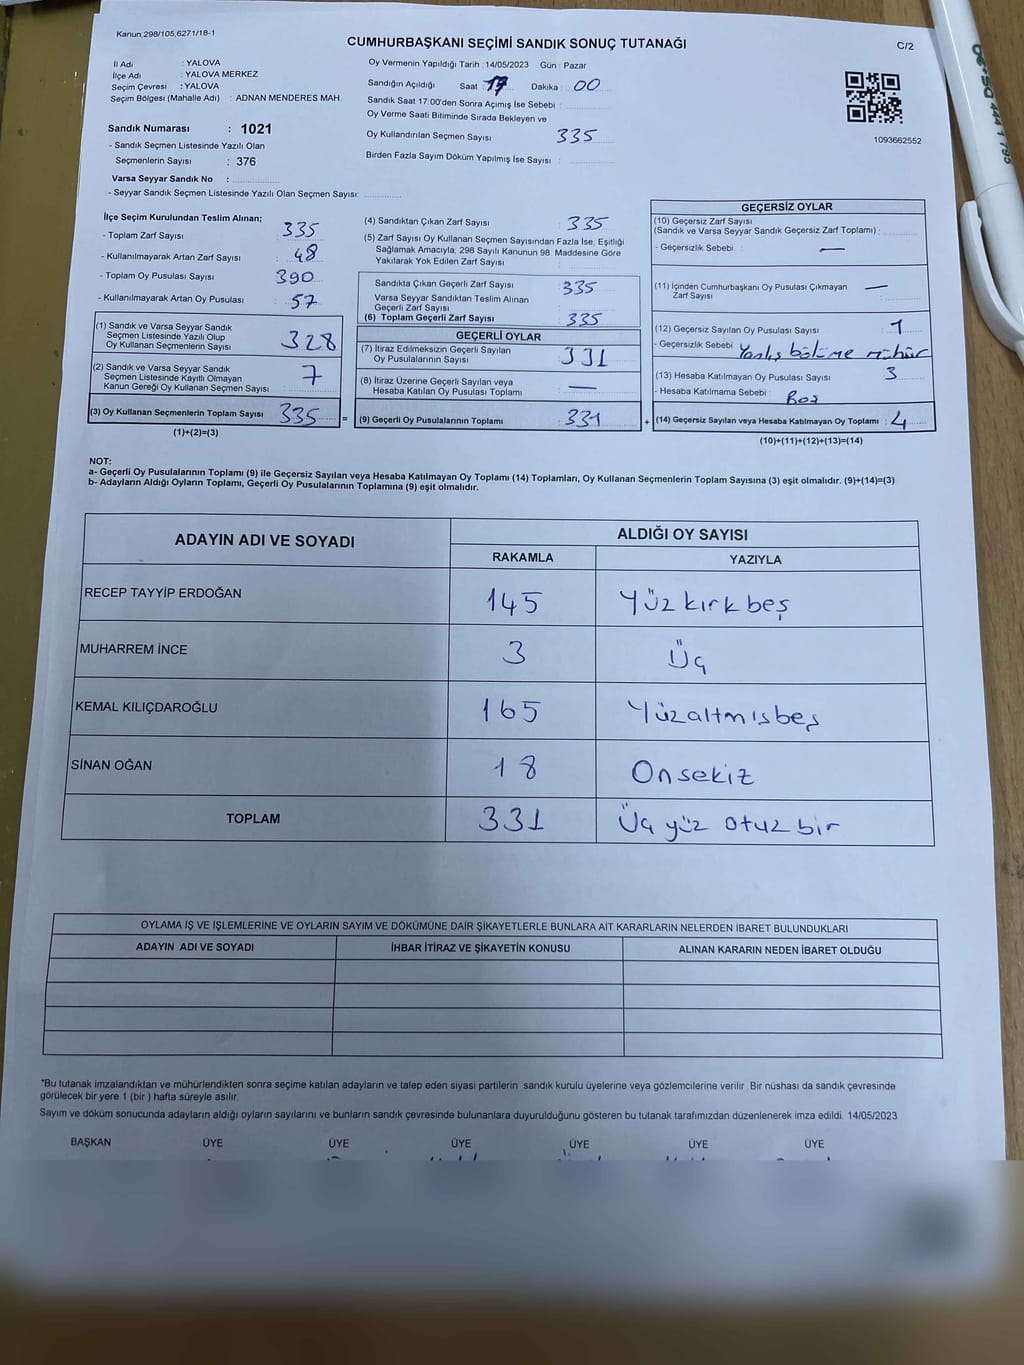 Kanun.298/105,6271/18-1
CUMHURBAŞKANI SEÇİMİ SANDIK SONUÇ TUTANAĞI
C/2
İl Adı : YALOVA
İlçe Adı : YALOVA MERKEZ
Seçim Çevresi : YALOVA
Seçim Bölgesi (Mahalle Adı) : ADNAN MENDERES MAH.
Oy Vermenin Yapıldığı Tarih : 14/05/2023 Gün : Pazar
Sandığın Açıldığı Saat : 17 Dakika : 00
Sandık Saat 17.00'den Sonra Açımış İse Sebebi :
Oy Verme Saati Bitiminde Sırada Bekleyen ve
Oy Kullandırılan Seçmen Sayısı 335
Birden Fazla Sayım Döküm Yapılmış İse Sayısı :
1093662552
Sandık Numarası : 1021
- Sandık Seçmen Listesinde Yazılı Olan
Seçmenlerin Sayısı : 376
Varsa Seyyar Sandık No :
- Seyyar Sandık Seçmen Listesinde Yazılı Olan Seçmen Sayısı:
İlçe Seçim Kurulundan Teslim Alınan;
- Toplam Zarf Sayısı : 335
- Kullanılmayarak Artan Zarf Sayısı : 48
- Toplam Oy Pusulası Sayısı : 390
- Kullanılmayarak Artan Oy Pusulası : 57
(1) Sandık ve Varsa Seyyar Sandık
Seçmen Listesinde Yazılı Olup
Oy Kullanan Seçmenlerin Sayısı : 328
(2) Sandık ve Varsa Seyyar Sandık
Seçmen Listesinde Kayıtlı Olmayan
Kanun Gereği Oy Kullanan Seçmen Sayısı : 7
(3) Oy Kullanan Seçmenlerin Toplam Sayısı : 335 =
(1)+(2)=(3)
(4) Sandıktan Çıkan Zarf Sayısı : 335
(5) Zarf Sayısı Oy Kullanan Seçmen Sayısından Fazla İse, Eşitliği
Sağlamak Amacıyla, 298 Sayılı Kanunun 98. Maddesine Göre
Yakılarak Yok Edilen Zarf Sayısı :
Sandıkta Çıkan Geçerli Zarf Sayısı : 335
Varsa Seyyar Sandıktan Teslim Alınan
Geçerli Zarf Sayısı :
(6) Toplam Geçerli Zarf Sayısı : 335
GEÇERLİ OYLAR
(7) İtiraz Edilmeksizin Geçerli Sayılan
Oy Pusulalarının Sayısı : 331
(8) İtiraz Üzerine Geçerli Sayılan veya
Hesaba Katılan Oy Pusulası Toplamı : —
(9) Geçerli Oy Pusulalarının Toplamı : 331 +
GEÇERSİZ OYLAR
(10) Geçersiz Zarf Sayısı
(Sandık ve Varsa Seyyar Sandık Geçersiz Zarf Toplamı) :
- Geçersizlik Sebebi : —
(11) İçinden Cumhurbaşkanı Oy Pusulası Çıkmayan
Zarf Sayısı : —
(12) Geçersiz Sayılan Oy Pusulası Sayısı : 1
- Geçersizlik Sebebi : Yanlış bölüme mühür
(13) Hesaba Katılmayan Oy Pusulası Sayısı : 3
- Hesaba Katılmama Sebebi : Boş
(14) Geçersiz Sayılan veya Hesaba Katılmayan Oy Toplamı : 4
(10)+(11)+(12)+(13)=(14)
NOT:
a- Geçerli Oy Pusulalarının Toplamı (9) ile Geçersiz Sayılan veya Hesaba Katılmayan Oy Toplamı (14) Toplamları, Oy Kullanan Seçmenlerin Toplam Sayısına (3) eşit olmalıdır. (9)+(14)=(3)
b- Adayların Aldığı Oyların Toplamı, Geçerli Oy Pusulalarının Toplamına (9) eşit olmalıdır.
ADAYIN ADI VE SOYADI
ALDIĞI OY SAYISI
RAKAMLA YAZIYLA
RECEP TAYYİP ERDOĞAN 145 Yüzkırkbeş
MUHARREM İNCE 3 Üç
KEMAL KILIÇDAROĞLU 165 Yüzaltmışbeş
SİNAN OĞAN 18 Onsekiz
TOPLAM 331 Üç yüz otuz bir
OYLAMA İŞ VE İŞLEMLERİNE VE OYLARIN SAYIM VE DÖKÜMÜNE DAİR ŞİKAYETLERLE BUNLARA AİT KARARLARIN NELERDEN İBARET BULUNDUKLARI
ADAYIN ADI VE SOYADI İHBAR İTİRAZ VE ŞİKAYETİN KONUSU ALINAN KARARIN NEDEN İBARET OLDUĞU
*Bu tutanak imzalandıktan ve mühürlendikten sonra seçime katılan adayların ve talep eden siyasi partilerin sandık kurulu üyelerine veya gözlemcilerine verilir. Bir nüshası da sandık çevresinde
görülecek bir yere 1 (bir ) hafta süreyle asılır.
Sayım ve döküm sonucunda adayların aldığı oyların sayılarını ve bunların sandık çevresinde bulunanlara duyurulduğunu gösteren bu tutanak tarafımızdan düzenlenerek imza edildi. 14/05/2023
BAŞKAN ÜYE ÜYE ÜYE ÜYE ÜYE ÜYE